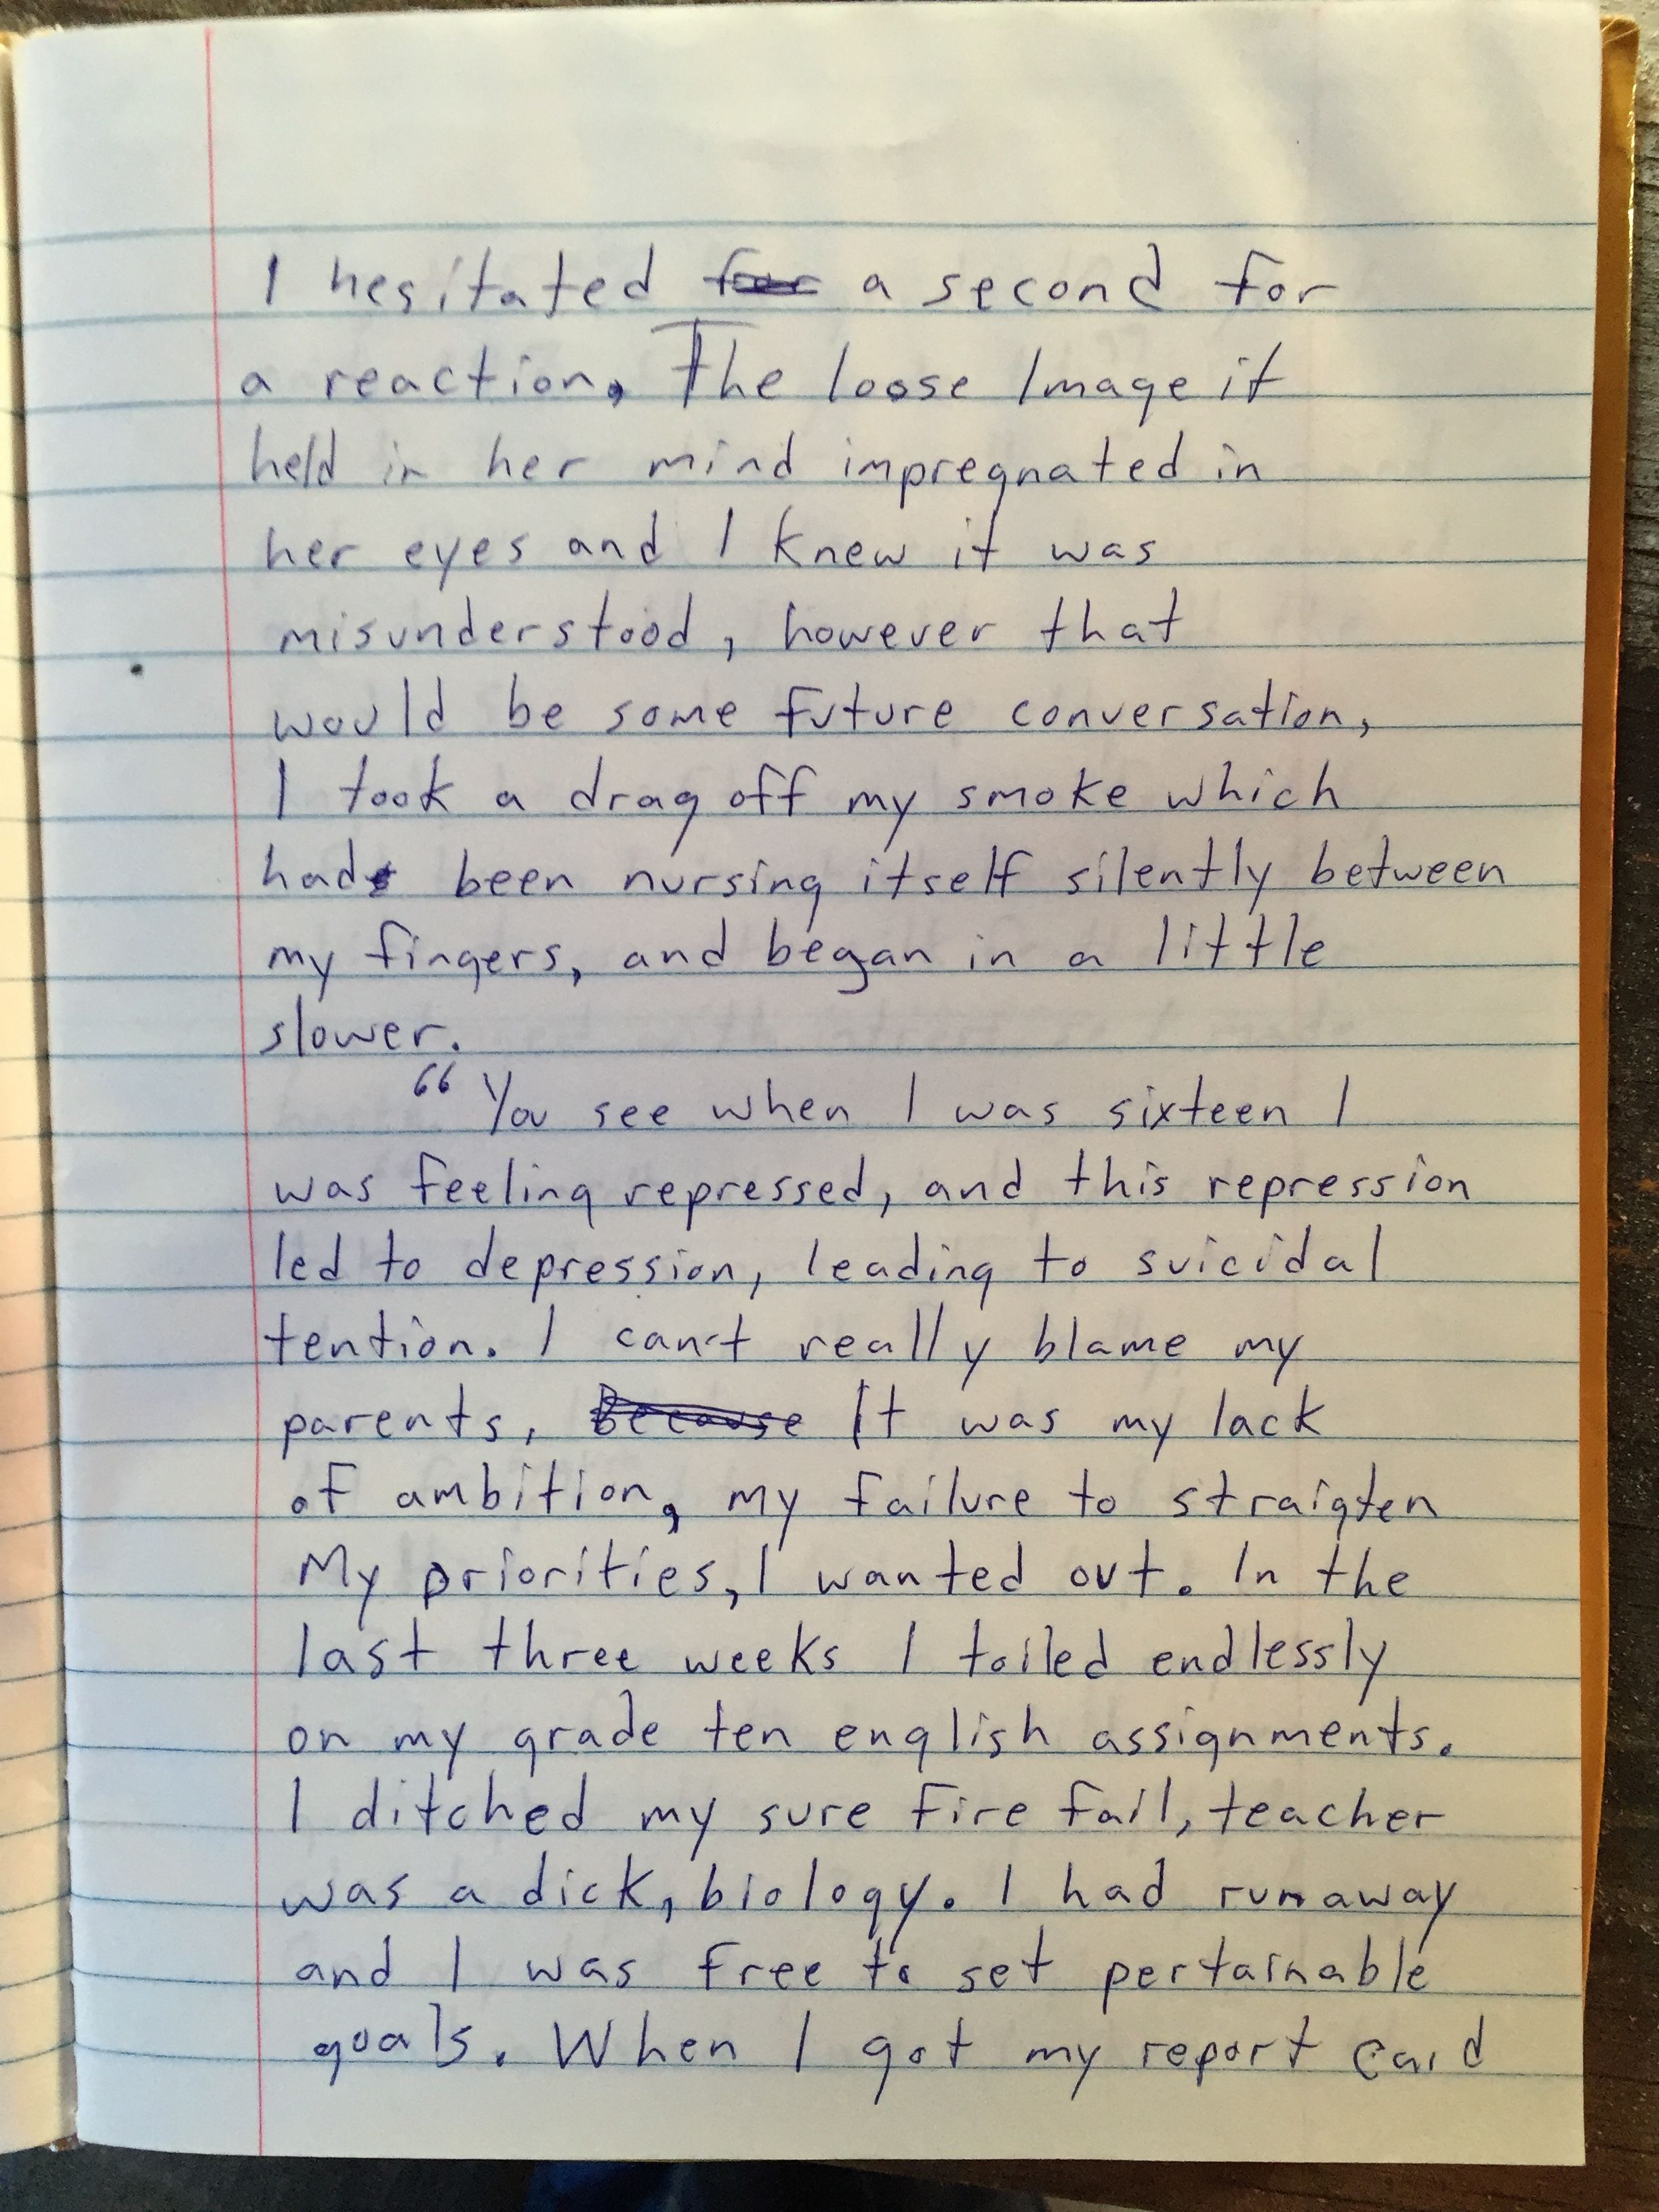 I hesitated for a second for
a reaction, The loose Image it
held in her mind impregnated in
her eyes and I knew it was
misunderstood, however that
would be some future conversation,
I took a drag off my smoke which
had been nursing itself silently between
my fingers, and began in a little
slower.
“ You see when I was sixteen I
was feeling repressed, and this repression
led to depression, leading to suicidal
tention. I can't really blame my
parents, Because It was my lack
of ambition, my failure to straigten
My priorities, I wanted out. In the
last three weeks I toiled endlessly
on my grade ten english assignments.
I ditched my sure fire fail, teacher
was a dick, biology. I had runaway
and I was free to set pertainable
goals. When I got my report card